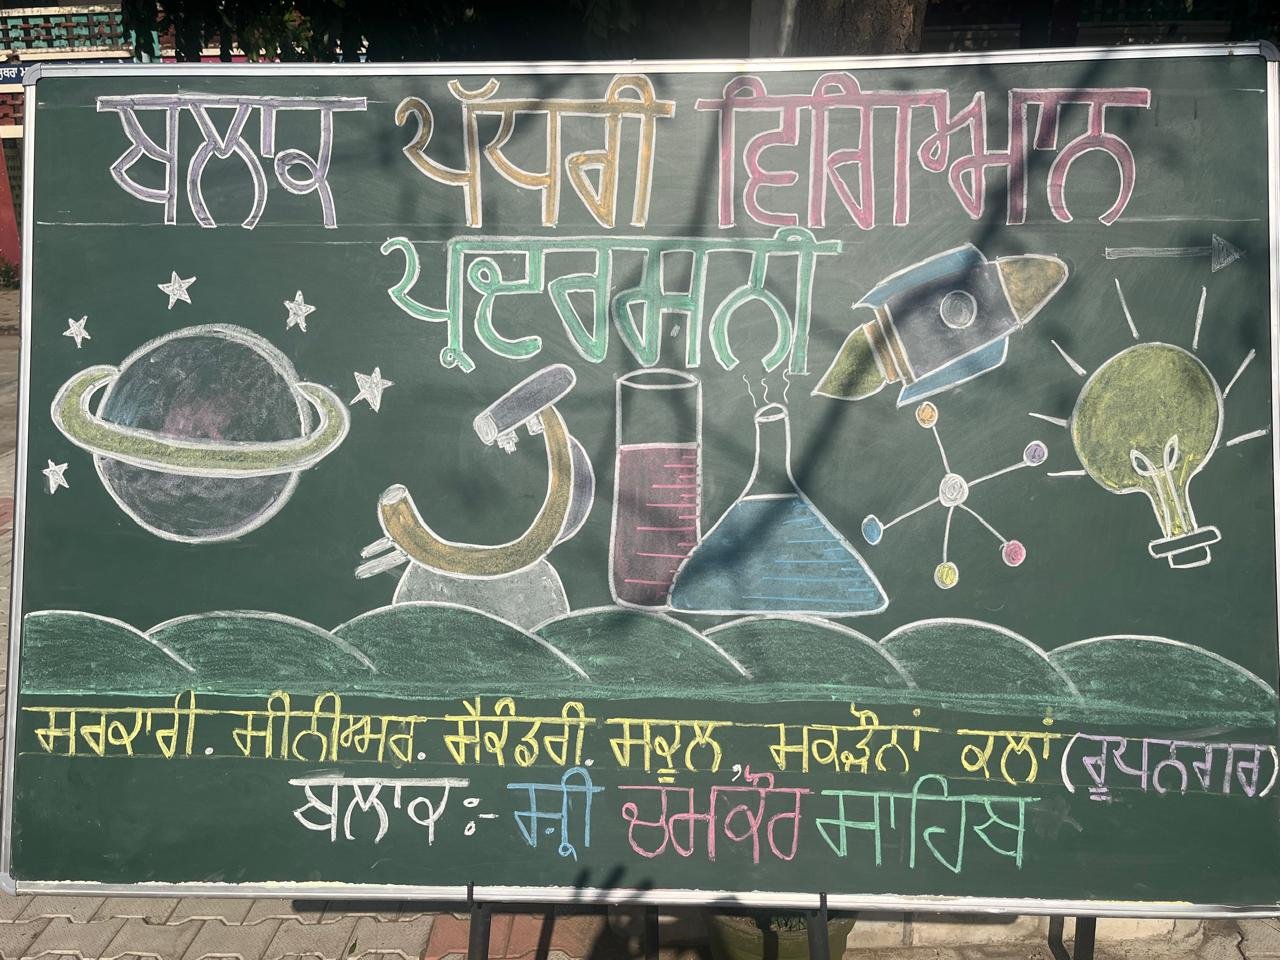 ਬਲਾਕ ਪੱਧਰੀ ਵਿਗਿਆਨ
ਪ੍ਰਦਰਸ਼ਨੀ
ਸਰਕਾਰੀ. ਸੀਨੀਅਰ. ਸੈਕੰਡਰੀ. ਸਕੂਲ, ਮਕੜੌਨਾਂ ਕਲਾਂ (ਰੂਪਨਗਰ)
ਬਲਾਕ :- ਸ਼੍ਰੀ ਚਮਕੌਰ ਸਾਹਿਬ